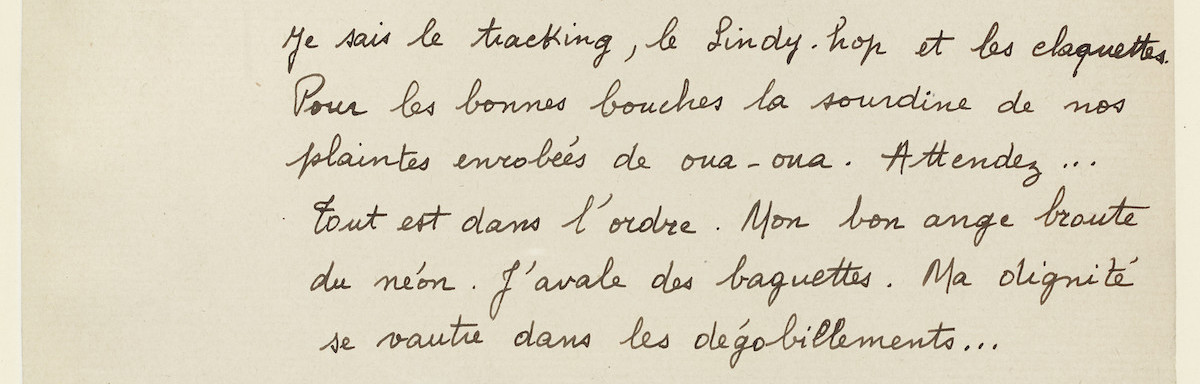 Je sais le tracking, le Lindy-hop et les claquettes.
Pour les bonnes bouches la sourdine de nos
plaintes enrobées de oua-oua. Attendez...
Tout est dans l'ordre. Mon bon ange broute
du néon. J'avale des baguettes. Ma dignité
se vautre dans les dégobillements...